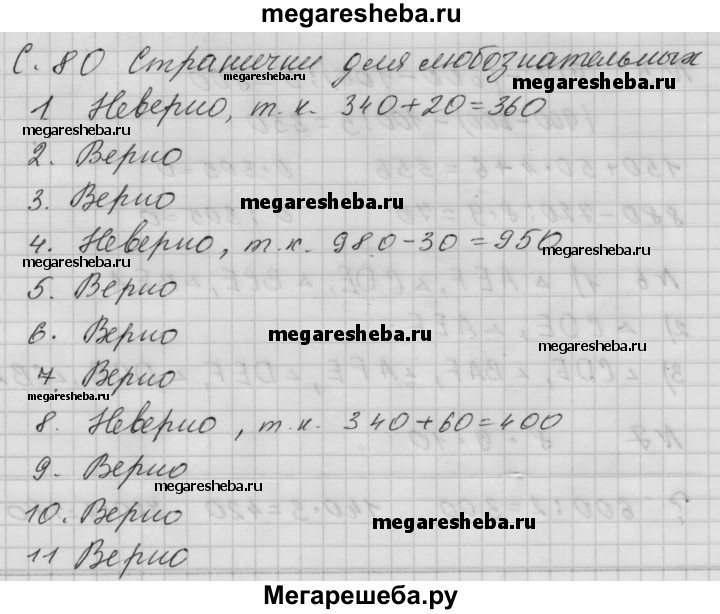 megaresheba.ru
С. 80 Странички для любознательных
megaresheba.ru
megaresheba.ru
1 Неверно, т. к. 340+20=360
megaresheba.ru
2. Верно
3. Верно
megaresheba.ru
4. Неверно, т.к. 980-30=950
megaresheba.ru
megaresheba.ru
5. Верно
6. Верно
megaresheba.ru
megaresheba.ru
7. Верно
megaresheba.ru
8. Неверно, т.к. 340+60=400
9. Верно
megaresheba.ru
10. Верно
megaresheba.ru
11 Верно
Мегарешеба.ру